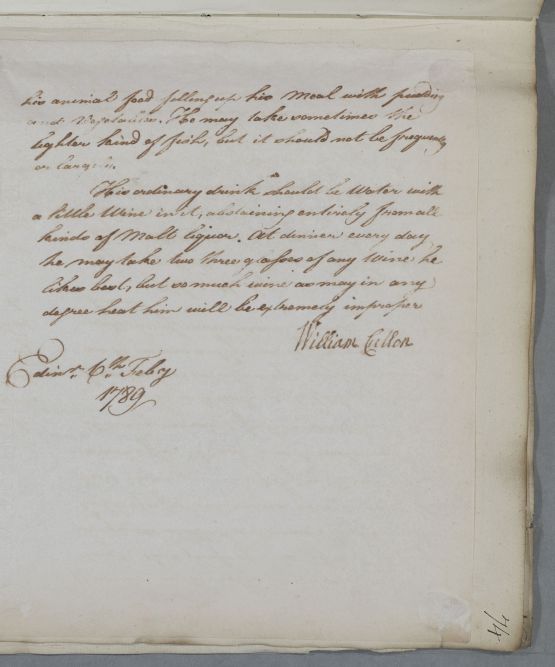 his animal food filling up his Meal with pudding
and Vegetables. He may take sometimes the
lighter kind of fish, but it should not be frequently
or largely.
His ordinary drink should be Water with
a little Wine in it, abstaining entirely from all
kinds of Malt liquor. At dinner every day
he may take two three glasses of any Wine he
likes best, but so much wine as may in any
degree heat him will be extremely improper
William Cullen
Edinr. 6th. Feby
1789